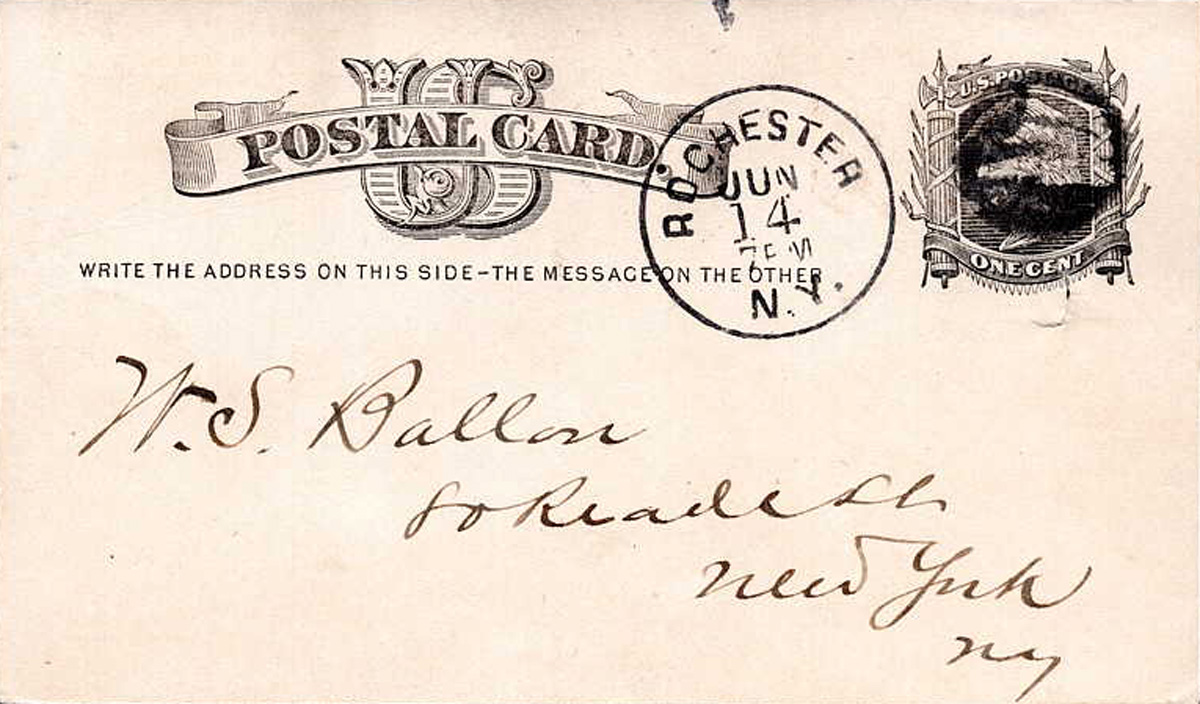 US
POSTAL CARD
WRITE THE ADDRESS ON THIS SIDE–THE MESSAGE ON THE OTHER
ROCHESTER
JUN
14
N.Y.
U.S. POSTAGE
ONE CENT
W. S. Ballon
80 Reade St
New York
NY